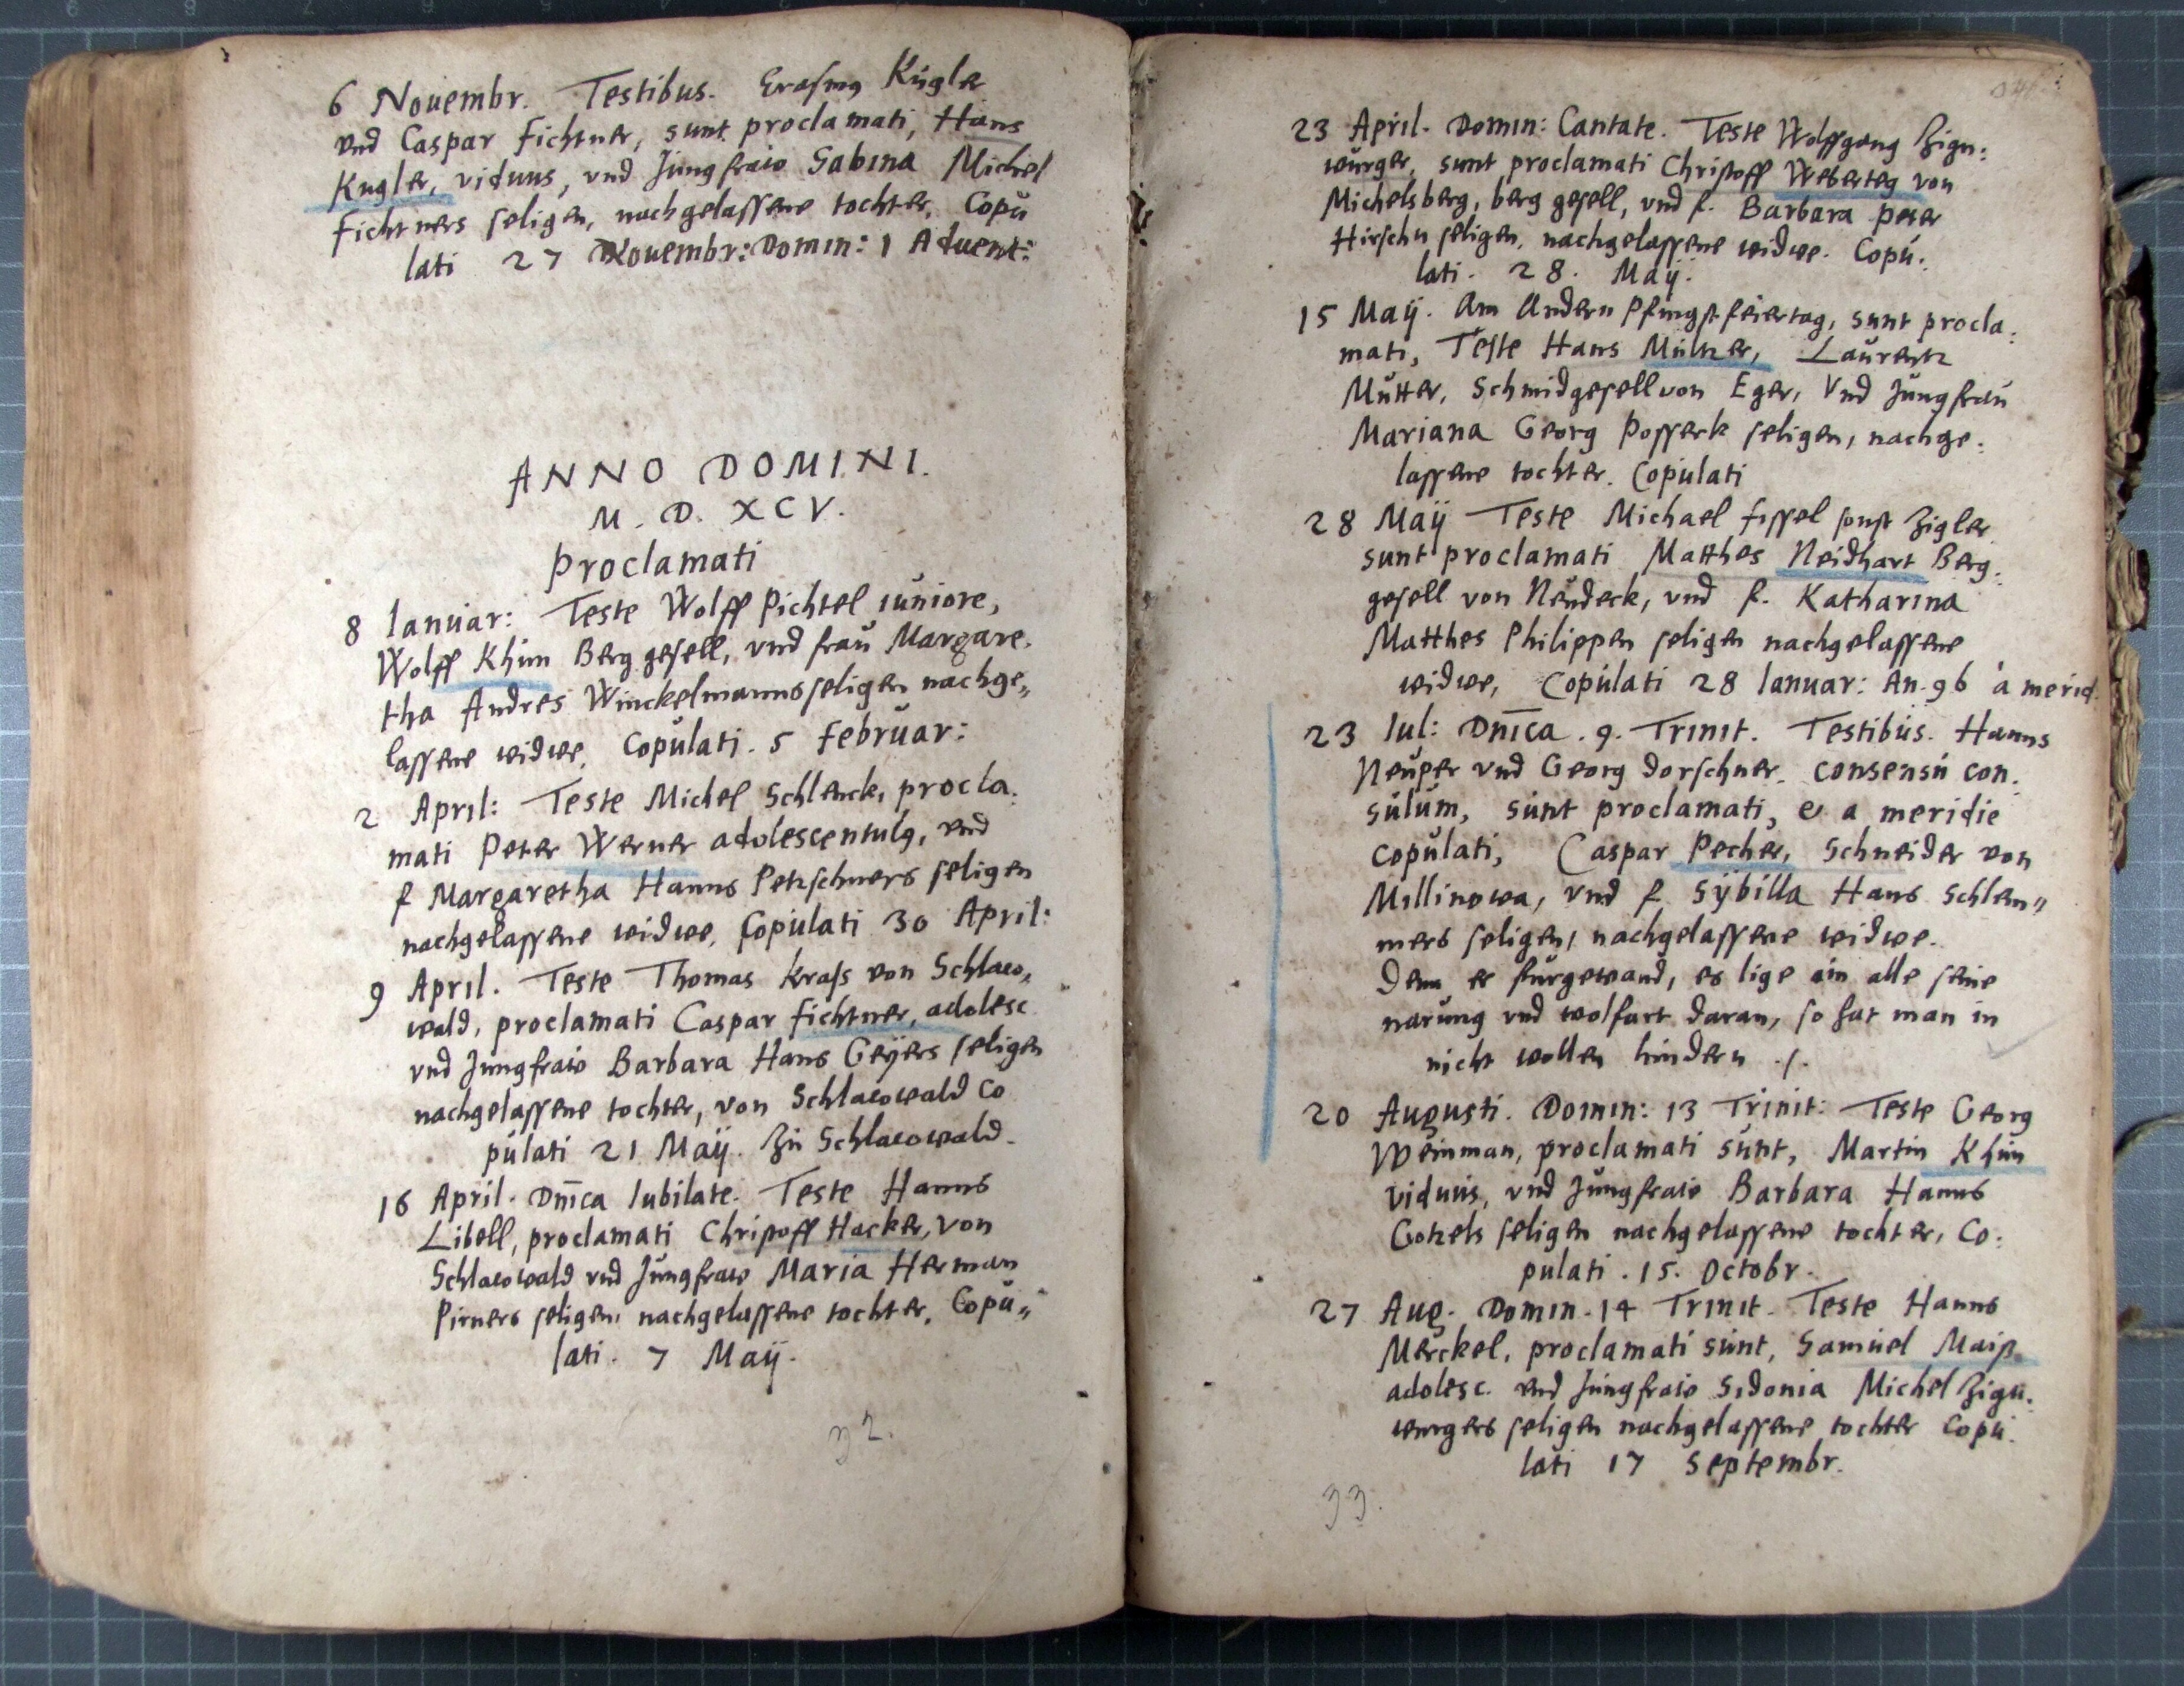 6 Nouembr. Testibus. Erasmus Kugler
vnd Caspar Fichtner, sunt proclamati, Hans
Kugler, viduus, vnd Jungfraw Sabina Michel
Fichtners seligen, nachgelassene tochter, Copu
lati 27 Nouembr: Domin: 1 Aduent:
ANNO DOMINI.
M. D. XCV.
Proclamati
8 Ianuar: Teste Wolff Pichtel iuniore,
Wolff Khün Berggesell, vnd frau Margare.
tha Andres Winckelmanns seligen nachge„
lassene widwe, Copulati. 5 Februar:
2 April: Teste Michel Schlenck, procla.
mati Peter Werner adolescentulus, vnd
f Margaretha Hanns Petzschners seligen
nachgelassene widwe, Copulati 30 April:
9 April. Teste Thomas Krass von Schlaco„
wald, proclamati Caspar Fichtner, adolesc
vnd Jungfraw Barbara Hans Geÿers seligen
nachgelassene tochter, von Schlacowald Co
pulati 21 Maÿ. Zu Schlacowald.
16 April. Dnica Iubilate. Teste Hanns
Libell, proclamati Christoff Hacker, von
Schlacowald vnd Jungfraw Maria Herman
Pirners seligen, nachgelassene tochter, Copu„
lati. 7 Maÿ.
32.
23 April. Domin: Cantate. Teste Wolffgang Zign:
würger, sunt proclamati Christoff Weberteg von
Michelsberg, berg gesell, vnd f. Barbara Peter
Hirschn seligen, nachgelassene widwe. Copu:
lati. 28. Maÿ.
15 Maÿ. Am Andern Pfingstfeiertag, sunt procla:
mati, Teste Hans Mültzer, Laurentz
Mutter, Schmidgesell von Eger, Vnd Jungfrau
Mariana Georg Posseck seligen, nachge:
lassene tochter. Copulati
28 Maÿ Teste Michael Fissel sonst Zigler
sunt proclamati Matthes Neidhart Berg:
gesell von Neudeck, vnd f. Katharina
Matthes Philippen seligen nachgelassene
widwe, Copulati 28 Ianuar: An. 96 à merid.
23 Iul: Dnica. 9. Trinit. Testibus. Hanns
Neuper vnd Georg Dorschner. consensu con.
sulum, sunt proclamati, & a meridie
copulati, Caspar Pecher, Schneider von
Millinowa, vnd f. Sÿbilla Hans Schlem„
mers seligen, nachgelassene widwe.
Denn er furgewand, es lige ein alle seine
narung vnd wolfart daran, so hat man in
nicht wollen hindern ./.
20 Augusti. Domin: 13 Trinit: Teste Georg
Weinman, proclamati sunt, Martin Khün
viduus, vnd Jungfraw Barbara Hanns
Gotzels seligen nachgelassene tochter, Co:
pulati. 15. Octobr.
27 Aug. Domin. 14 Trinit. Teste Hanns
Merckel, proclamati sunt, Samuel Maiß
adolesc. vnd Jungfraw Sidonia Michel Zign.
wurgers seligen nachgelassene tochter Copu.
lati 17 Septembr.
33.